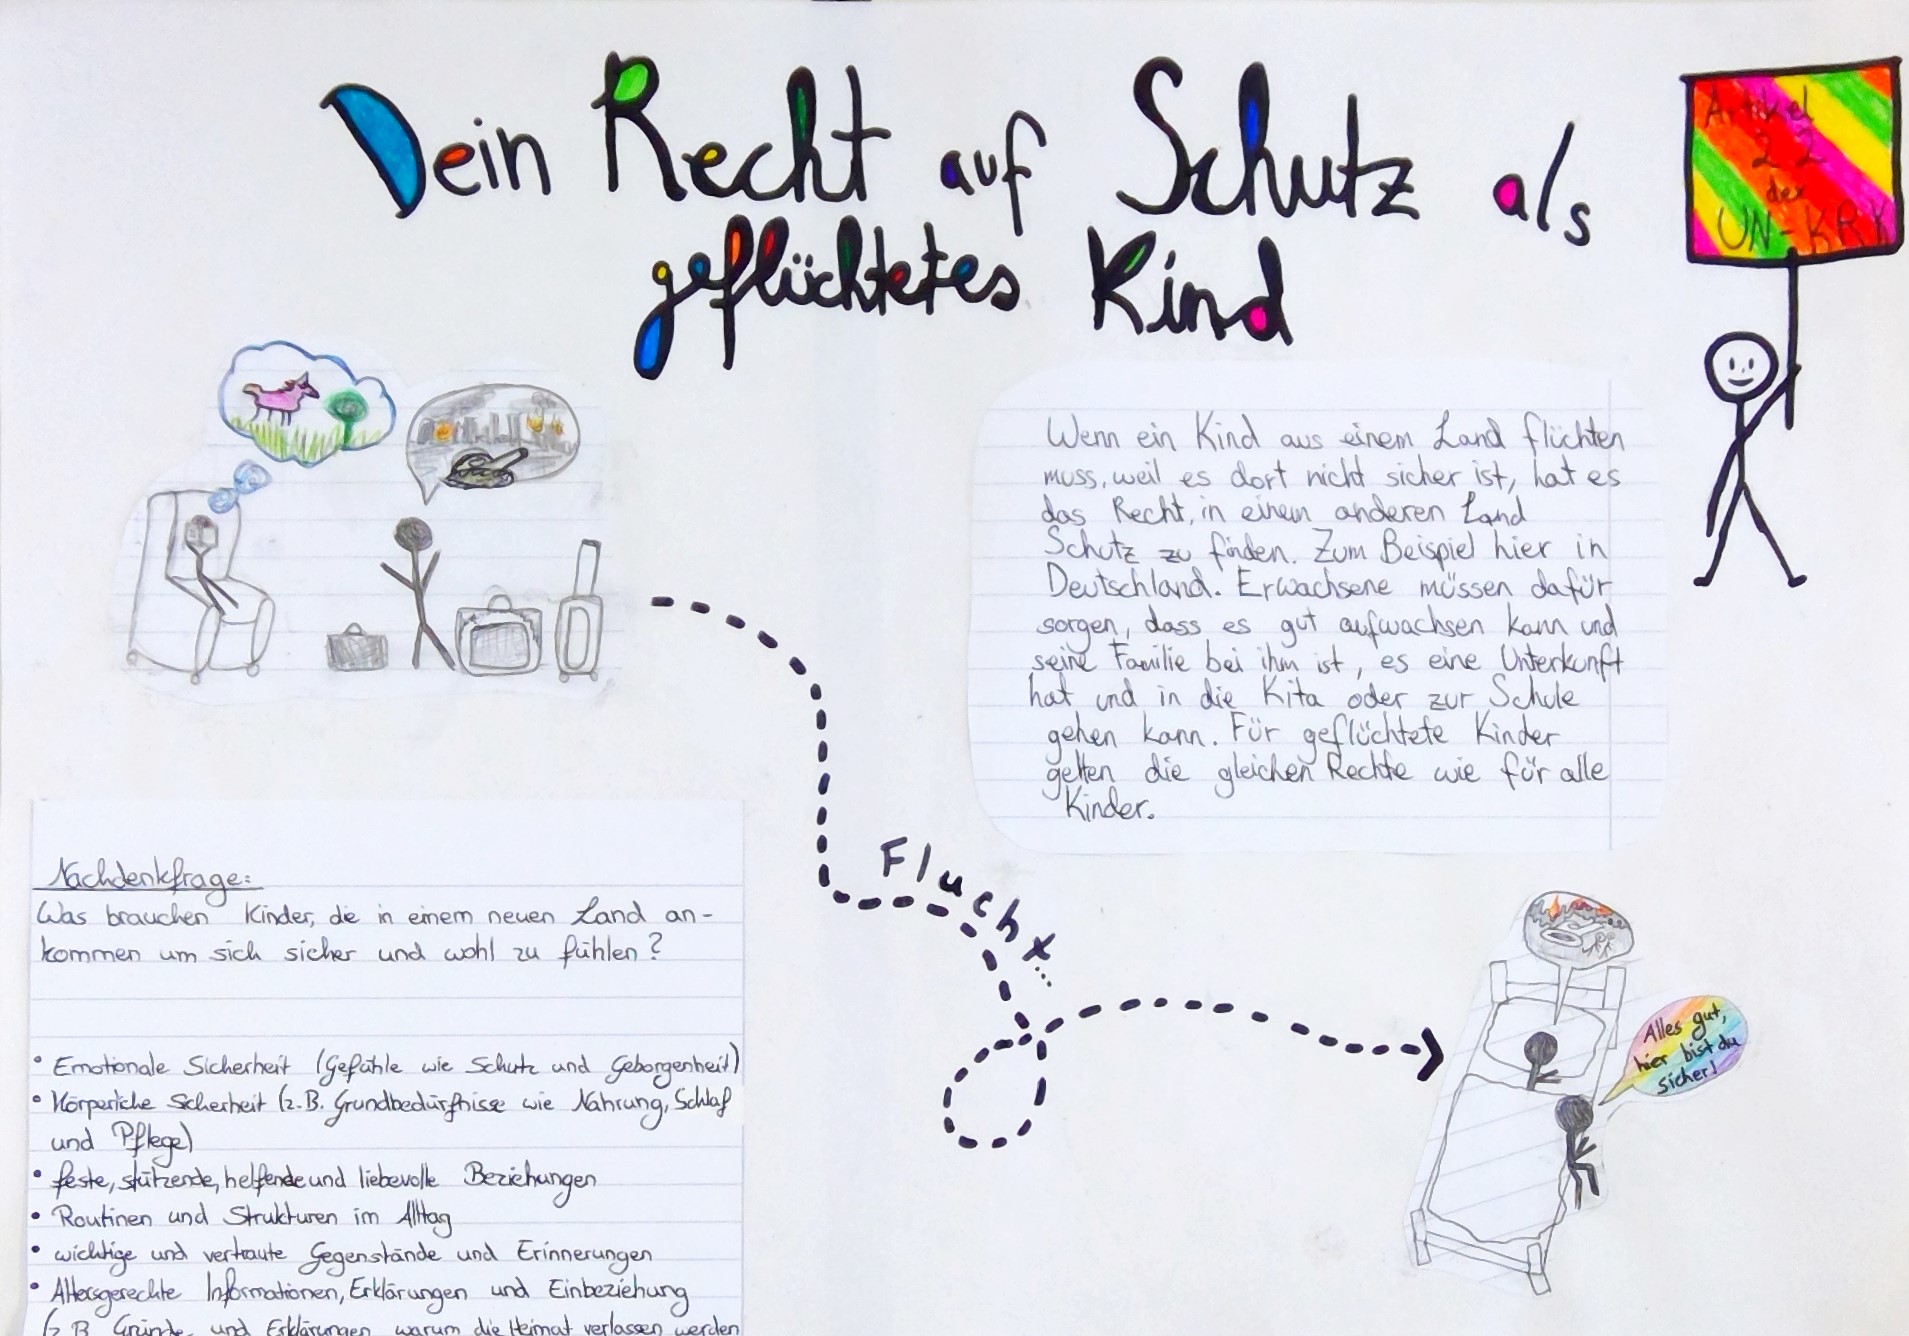 Dein Recht auf Schutz als
geflüchtetes Kind
Artikel
22
der
UN-KRK
Wenn ein Kind aus einem Land flüchten
muss, weil es dort nicht sicher ist, hat es
das Recht, in einem anderen Land
Schutz zu finden. Zum Beispiel hier in
Deutschland. Erwachsene müssen dafür
sorgen, dass es gut aufwachsen kann und
seine Familie bei ihm ist, es eine Unterkunft
hat und in die Kita oder zur Schule
gehen kann. Für geflüchtete Kinder
gelten die gleichen Rechte wie für alle
Kinder.
Flucht
Nachdenkfrage:
Was brauchen Kinder, die in einem neuen Land an-
kommen um sich sicher und wohl zu fühlen?
• Emotionale Sicherheit (Gefühle wie Schutz und Geborgenheit)
• Körperliche Sicherheit (z.B. Grundbedürfnisse wie Nahrung, Schlaf
und Pflege)
• feste, stützende, helfende und liebevolle Beziehungen
• Routinen und Strukturen im Alltag
• wichtige und vertraute Gegenstände und Erinnerungen
• Altersgerechte Informationen, Erklärungen und Einbeziehung
(z.B. Gründe und Erklärungen warum die Heimat verlassen werden
Alles gut,
hier bist du
sicher!